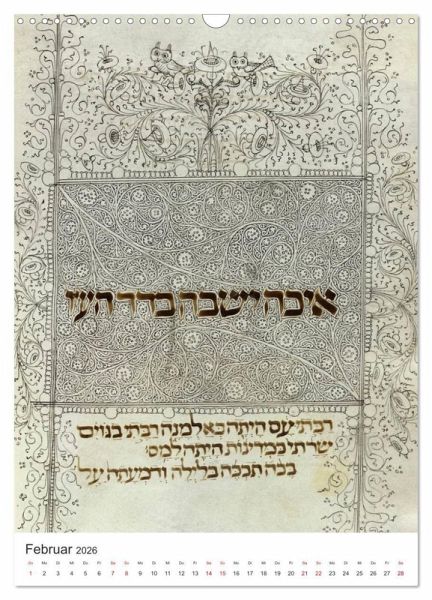 איכה ישבה בדד העיר
רבתי עם היתה כאלמנה רבתי בגוים
שרתי במדינות היתה למס
בכה תבכה בלילה ודמעתה על
Februar 2026
So Mo Di Mi Do Fr Sa So Mo Di Mi Do Fr Sa So Mo Di Mi Do Fr Sa So Mo Di Mi Do Fr Sa
1 2 3 4 5 6 7 8 9 10 11 12 13 14 15 16 17 18 19 20 21 22 23 24 25 26 27 28